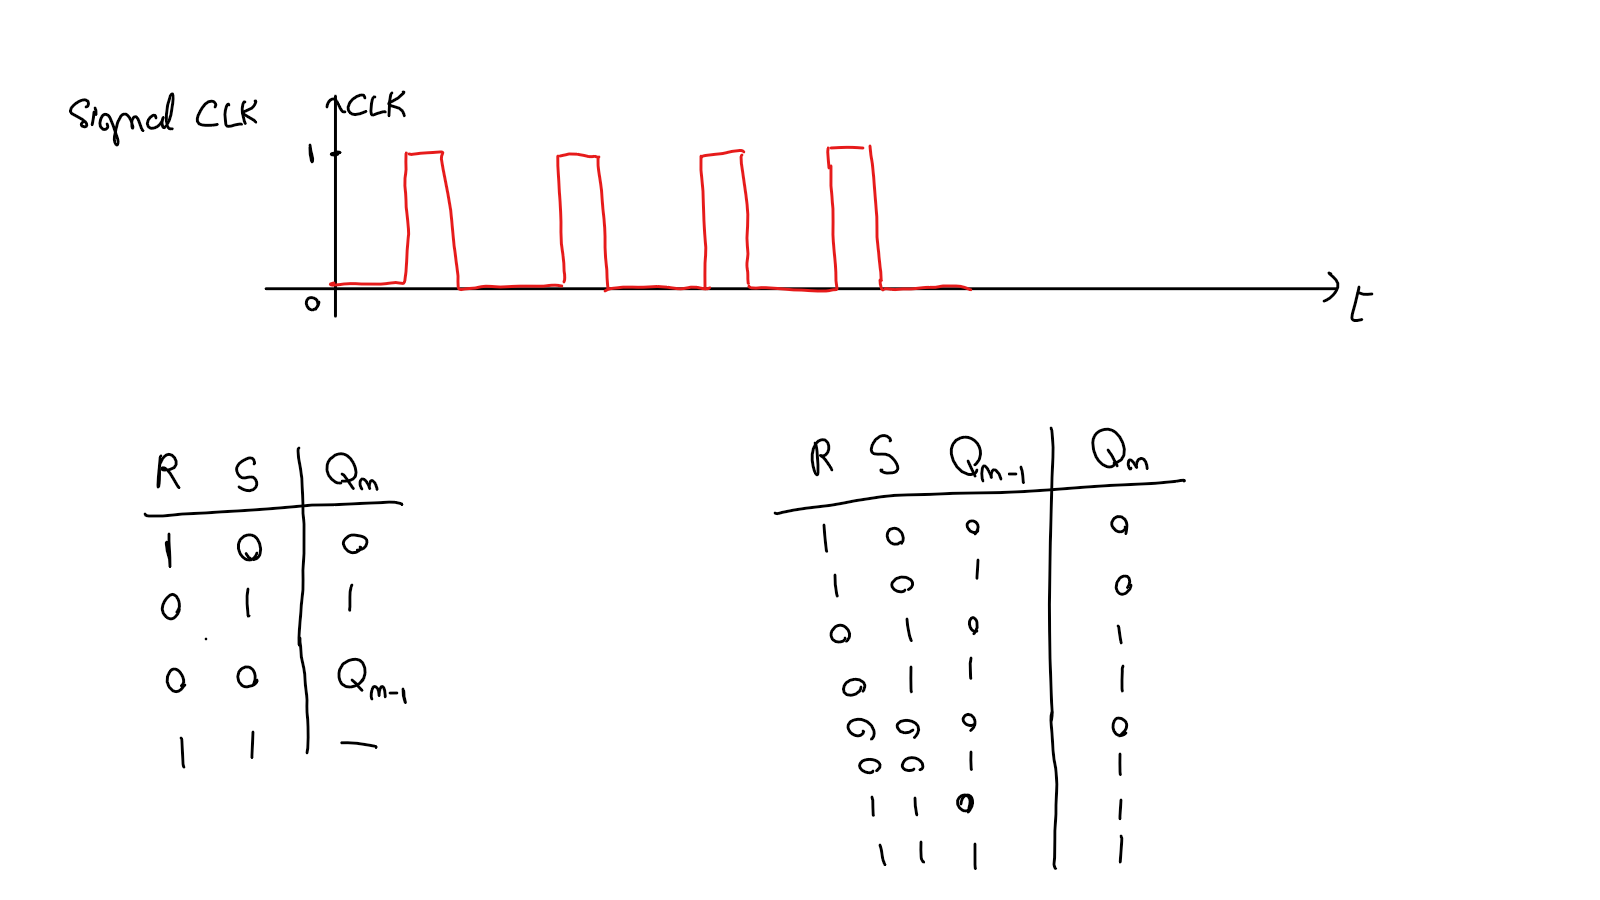 Signal CLK
CLK
1
0
t
R S Qm
1 0 0
0 1 1
0 0 Qm-1
1 1 —
R S Qm-1 Qm
1 0 0 0
1 0 1 0
0 1 0 1
0 1 1 1
0 0 0 0
0 0 1 1
1 1 0 1
1 1 1 1